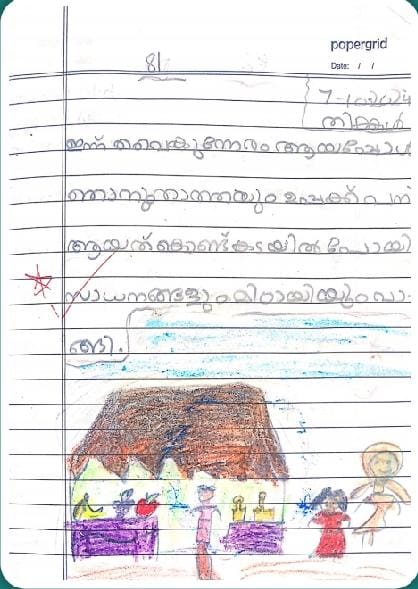 popergrid
Date: / /
81
തിങ്കൾ
ഇന്ന് വൈകുന്നേരം ആയപ്പോൾ
ഞാനും താത്തയും ഉപ്പക്ക് പനി
ആയത് കൊണ്ട് കടയിൽ പോയി
സാധനങ്ങളും മിഠായിയും വാ
ങ്ങി.